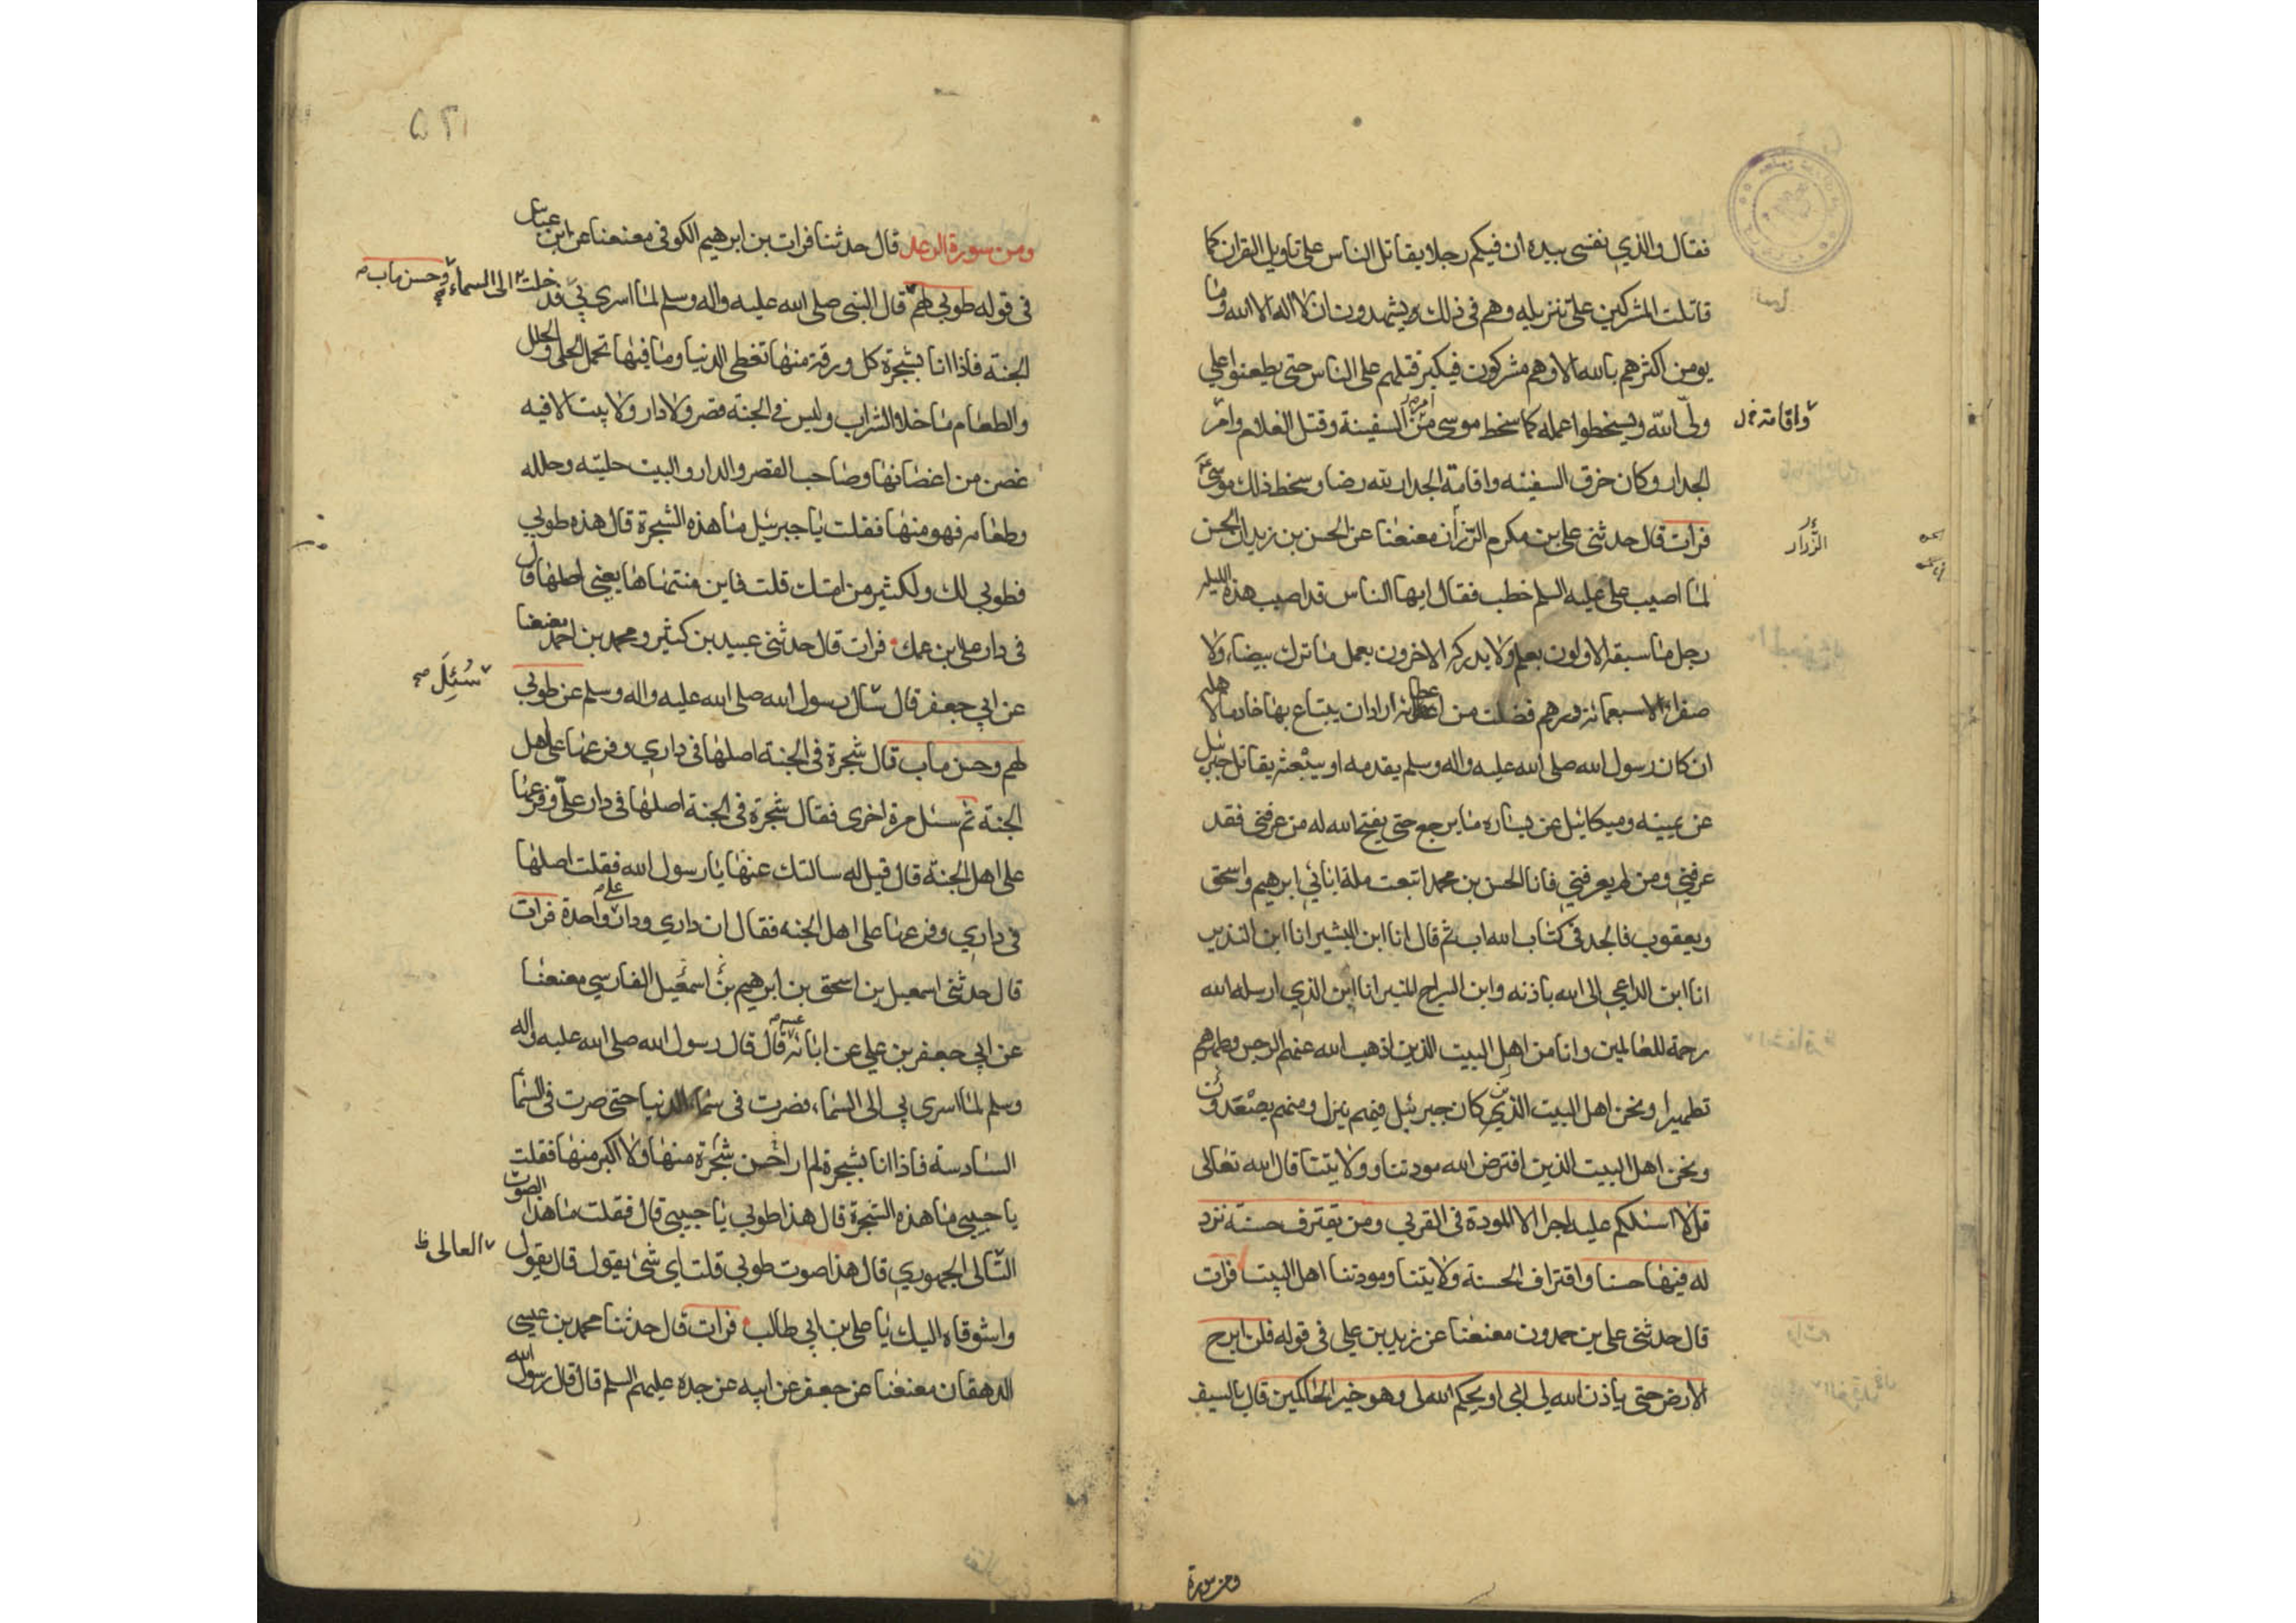 فقال والذي نفسي بيده ان فيكم رجلا يقاتل الناس على تاويل القران كما
قاتلت المشركين على تنزيله وهم في ذلك يشهدون ان لا اله الا الله وما
يومن اكثرهم بالله الا وهم مشركون فيكبر قتلهم على الناس حتى يطعنوا على
ولي الله ويسخطوا عمله كما سخط موسى من امر السفينة وقتل الغلام وامر
واقامة
الجدار وكان خرق السفينه واقامة الجدار لله رضا وسخط ذلك موسى
فرات قال حدثني علي بن مكرم الرزان معنعنا عن الحسن بن زيد ان الحسن
الزرار
لما اصيب علي عليه السلم خطب فقال ايها الناس قد اصيب هذه الليله
رجل ما سبقه الاولون بعلم ولا يدركه الاخرون بعمل ما ترك بيضاء ولا
صفراء الا سبعمائه درهم فضلت من عطائه اراد ان يبتاع بها خادما لاهله
ان كان رسول الله صلى الله عليه واله وسلم يقدمه او يبعثه يقاتل جبرئيل
عن يمينه وميكائيل عن يساره ما يرجع حتى يفتح الله له من عرفني فقد
عرفني ومن لم يعرفني فانا الحسن بن محمد اتبعت ملة ابائي ابرهيم واسحق
ويعقوب فالجد في كتاب الله اب ثم قال انا ابن البشير انا ابن النذير
انا ابن الداعي الى الله باذنه وابن السراج المنير انا ابن الذي ارسله الله
رحمة للعالمين وانا من اهل البيت الذين اذهب الله عنهم الرجس وطهرهم
تطهيرا ونحن اهل البيت الذي كان جبرئيل فيهم ينزل ومنهم يصعدون
ونحن اهل البيت الذين افترض الله مودتنا وولايتنا قال الله تعالى
قل لا اسئلكم عليه اجرا الا المودة في القربى ومن يقترف حسنة نزد
له فيها حسنا واقتراف الحسنة ولايتنا ومودتنا اهل البيت فرات
قال حدثني علي بن حمدون معنعنا عن زيد بن علي في قوله فلن ابرح
الارض حتى ياذن الله لي ابي او يحكم الله لي وهو خير الحاكمين قال بالسيف
ومن سورة
ومن سورة الرعد قال حدثنا فرات بن ابرهيم الكوفي معنعنا عن ابن عباس
في قوله طوبى لهم قال النبي صلى الله عليه واله وسلم لما اسري بي فدخلت
الى السماء
وحسن ماب
الجنة فاذا انا بشجرة كل ورقة منها تغطي الدنيا وما فيها تحمل الحلي والحلل
والطعام ما خلا الشراب وليس في الجنة قصر ولا دار ولا بيت الا فيه
غصن من اغصانها وصاحب القصر والدار والبيت حليته وحلله
وطعامه فهو منها فقلت يا جبرئيل ما هذه الشجرة قال هذه طوبي
فطوبي لك ولكثير من امتك قلت فاين منتهاها يعني اصلها قال
في دار علي بن عمك فرات قال حدثني عبيد بن كثير ومحمد بن احمد معنعنا
عن ابي جعفر قال سال رسول الله صلى الله عليه واله وسلم عن طوبي
سُئِلَ
لهم وحسن ماب قال شجرة في الجنة اصلها في داري وفرعها على اهل
الجنة ثم سئل مرة اخرى فقال شجرة في الجنة اصلها في دار علي وفرعها
على اهل الجنة قال قيل له سالتك عنها يا رسول الله فقلت اصلها
في داري وفرعها على اهل الجنه فقال ان داري ودار علي واحدة فرات
قال حدثني اسمعيل بن اسحق بن ابرهيم بن اسمعيل الفارسي معنعنا
عن ابي جعفر بن علي عن ابائه قال قال رسول الله صلى الله عليه واله
وسلم لما اسري بي الى السماء فصرت في سماء الدنيا حتى صرت في السما
السادسة فاذا انا بشجرة لم ار احسن شجرة منها ولا اكبر منها فقلت
يا حبيبي ما هذه الشجرة قال هذا طوبي يا حبيبي قال فقلت ما هذا الصوت
التالى الجهوري قال هذا صوت طوبي قلت اي شئ يقول قال يقول
العالى
واشوقاه اليك يا علي بن ابي طالب فرات قال حدثنا محمد بن عيسى
الدهقان معنعنا عن جعفر عن ابيه عن جده عليهم السلم قال قال رسول الله